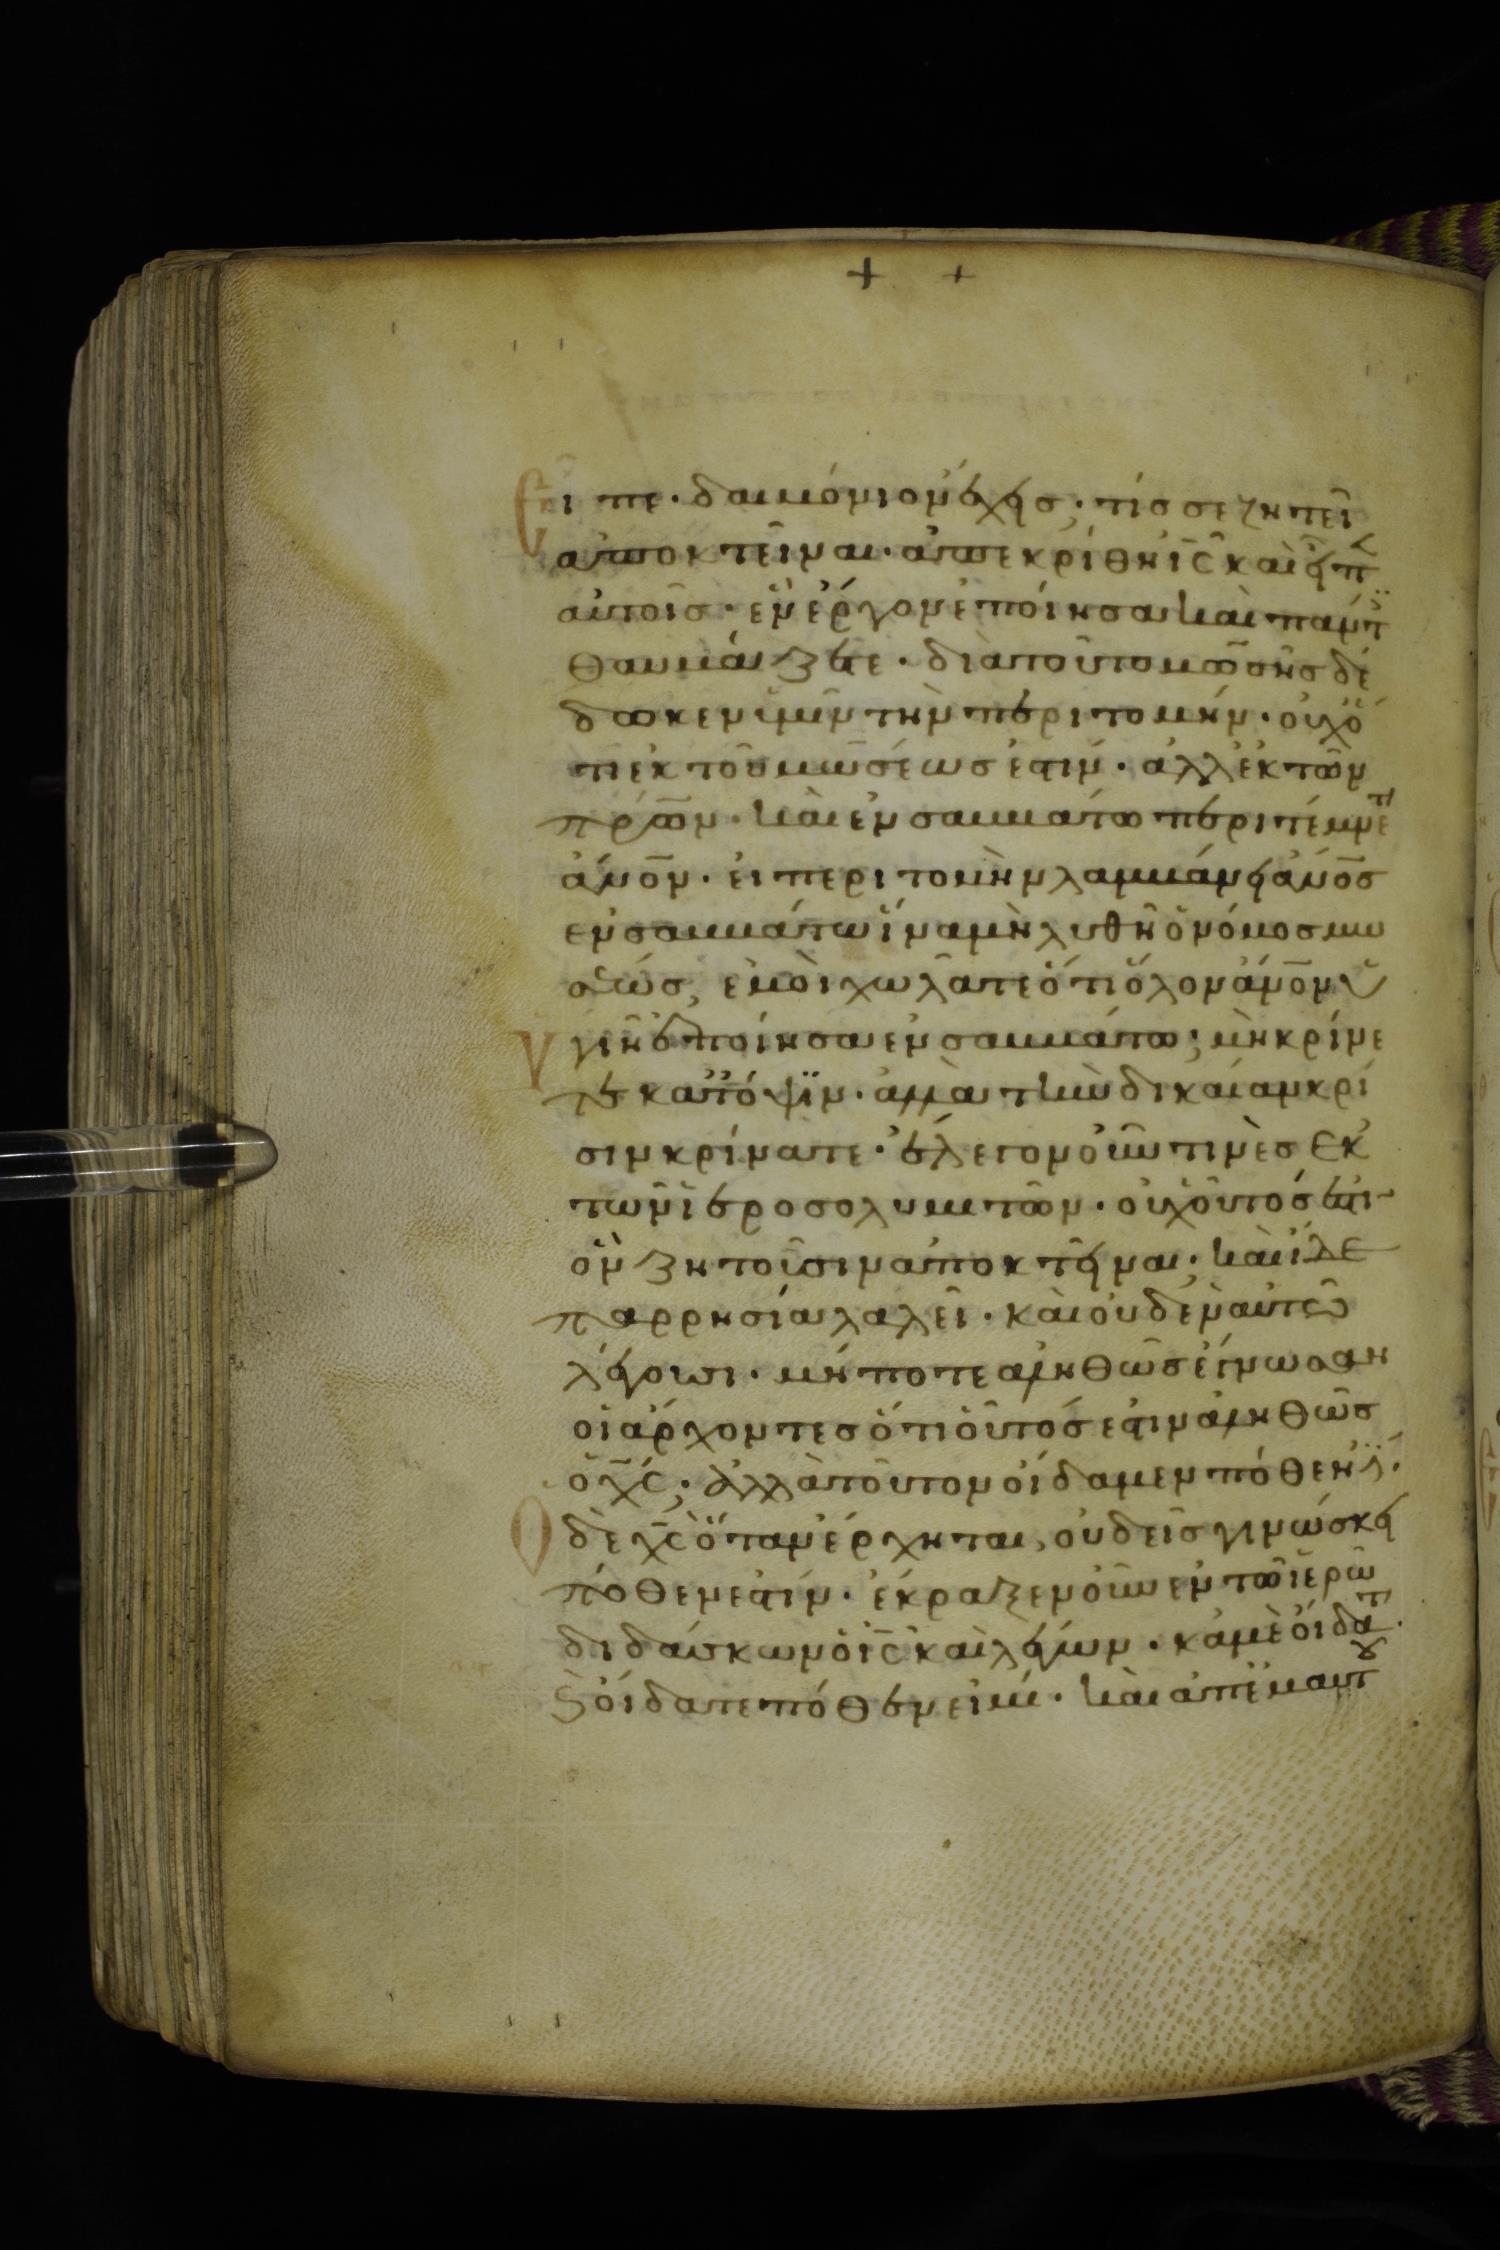 + +
Εἶπε· δαιμόνιον ἔχεις· τίς σε ζητεῖ
ἀποκτεῖναι· ἀπεκρίθη ι̅ς̅ καὶ εἶπ
αὐτοῖς· ἓν ἔργον ἐποίησα καὶ πάντ
θαυμάζετε· διὰ τοῦτο μωσῆς δέ
δωκεν ὑμῖν τὴν περιτομήν· οὐχ ὅ
τι ἐκ τοῦ μωσέως ἐστίν· ἀλλ ἐκ τῶν
πρ̅ω̅ν· καὶ ἐν σαββάτω περιτέμνετ
ἀν̅ο̅ν· εἰ περιτομὴν λαμβάνει ἀν̅ο̅ς
ἐν σαββάτω ἵνα μὴ λυθῆ ὁ νόμος μω
σέως, ἐμοὶ χωλᾶτε ὅτι ὅλον ἀν̅ο̅ν ὑ
Υγιῆ ἐποίησα ἐν σαββάτω; μὴ κρίνε
τε κατ ὄψιν· ἀλλὰ τὴν δικαίαν κρί
σιν κρίνατε· ἔλεγον οὖν τινὲς ἐκ
τῶν ἱεροσολυμιτῶν· οὐχ οὗτός ἐστι
ὃν ζητοῦσιν ἀποκτεῖναι· καὶ ἴδε
παρρησία λαλεῖ· καὶ οὐδὲν αὐτῶ
λέγουσι· μήποτε ἀληθῶς ἔγνωσαν
οἱ ἄρχοντες ὅτι οὗτός ἐστιν ἀληθῶς
ὁ χ̅ς̅; ἀλλὰ τοῦτον οἴδαμεν πόθεν ἐστί·
Ὁ δὲ χ̅ς̅ ὅταν ἔρχηται, οὐδεὶς γινώσκει
πόθεν ἐστίν· ἔκραξεν οὖν ἐν τῶ ἱερῶ
διδάσκων ὁ ι̅ς̅ καὶ λέγων· κἀμὲ οἴδατ·
ϗ οἴδατε πόθεν εἰμί· καὶ ἀπ ἐμαυτου